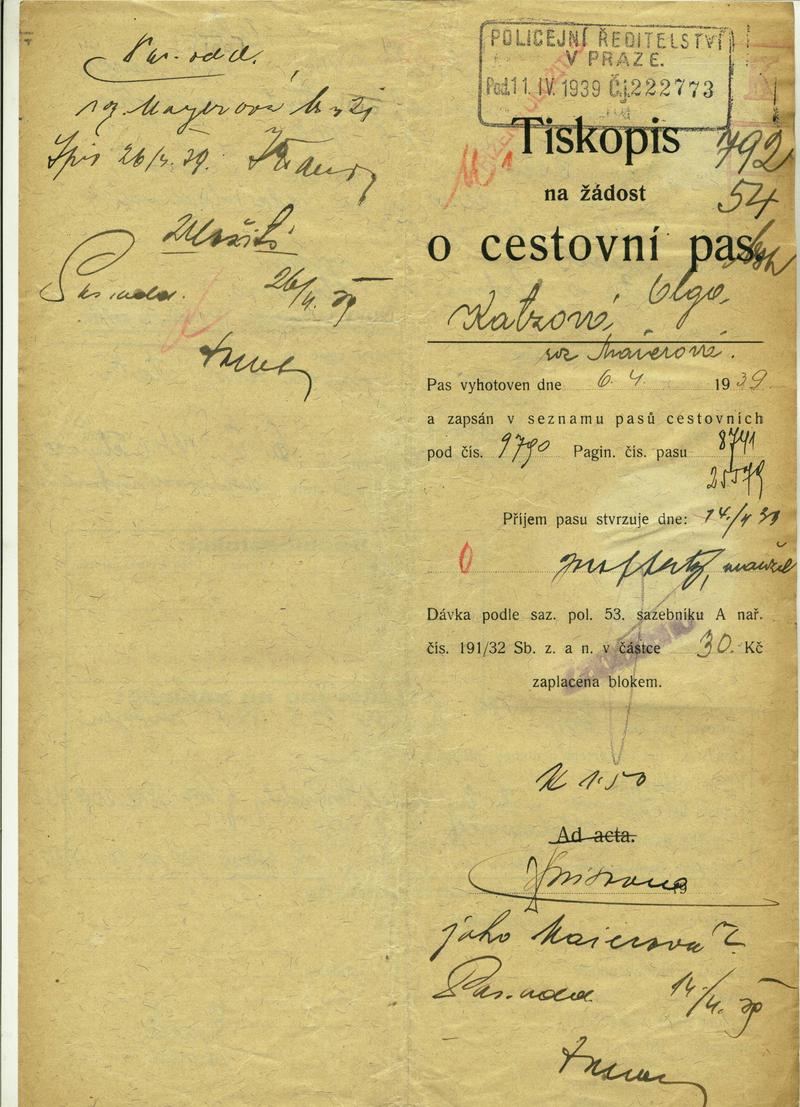 Pas. odd.
roz. Mayerová
Spis 26/4. 39.
Pas. odd. 26/4. 39
POLICEJNÍ ŘEDITELSTVÍ
V PRAZE.
Pod. 11. IV. 1939 Č.j. 222773
Tiskopis 792
na žádost 54
o cestovní pas.
Katzová Olga,
roz. Maierová.
Pas vyhotoven dne 6. 4. 1939.
a zapsán v seznamu pasů cestovních
pod čís. 9790 Pagin. čís. pasu 8741
25579
Příjem pasu stvrzuje dne: 14/4 39
0 manžel
Dávka podle saz. pol. 53. sazebníku A nař.
čís. 191/32 Sb. z. a n. v částce 30. Kč
zaplacena blokem.
K 1.50
Ad acta.
19
jako Maierová?
Pas. odd. 14/4. 39